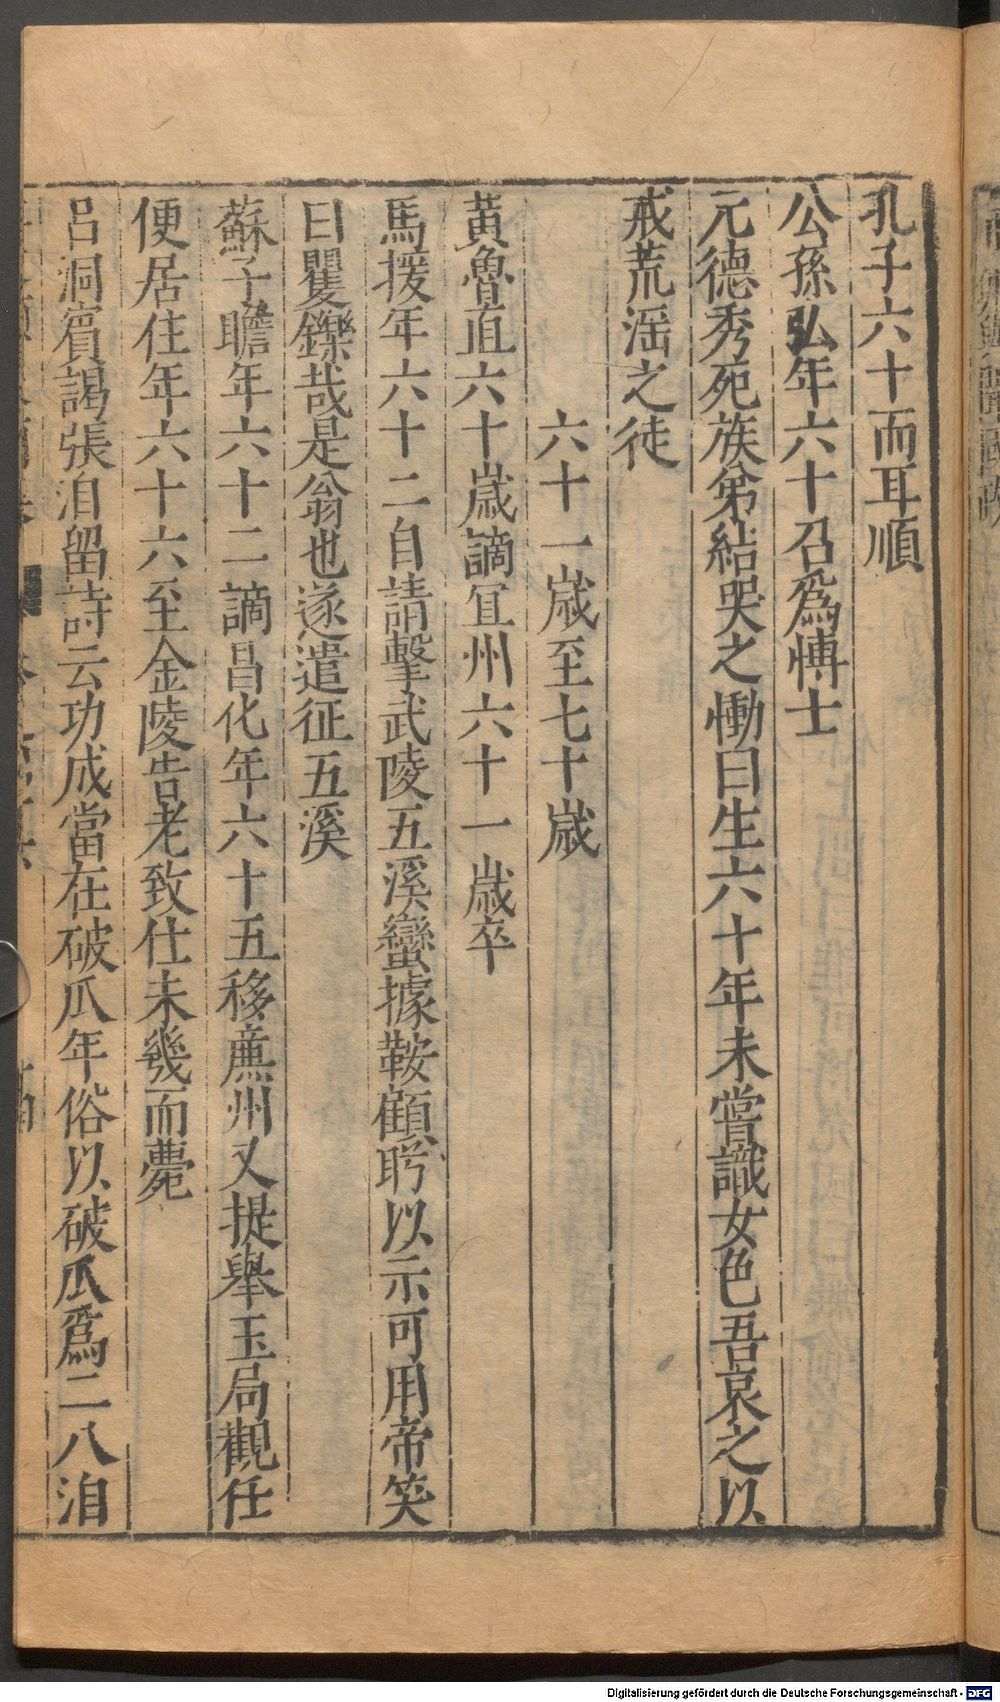 孔子六十而耳順
公孫弘年六十召爲愽士
元德秀死族弟結哭之慟曰生六十年未嘗識女色吾哀之以
戒荒滛之徒
六十一歲至七十歲
黃魯直六十歲謫宜州六十一歲卒
馬援年六十二自請擊武陵五溪蠻據鞍顧眄以示可用帝笑
曰矍鑠哉是翁也遂遣征五溪
蘇子瞻年六十二謫昌化年六十五移廉州又提舉玉局觀任
便居住年六十六至金陵告老致仕未幾而薨
呂洞賓謁張洎留詩云功成當在破瓜年俗以破瓜爲二八洎
Digitalisierung gefördert durch die Deutsche Forschungsgemeinschaft - DFG